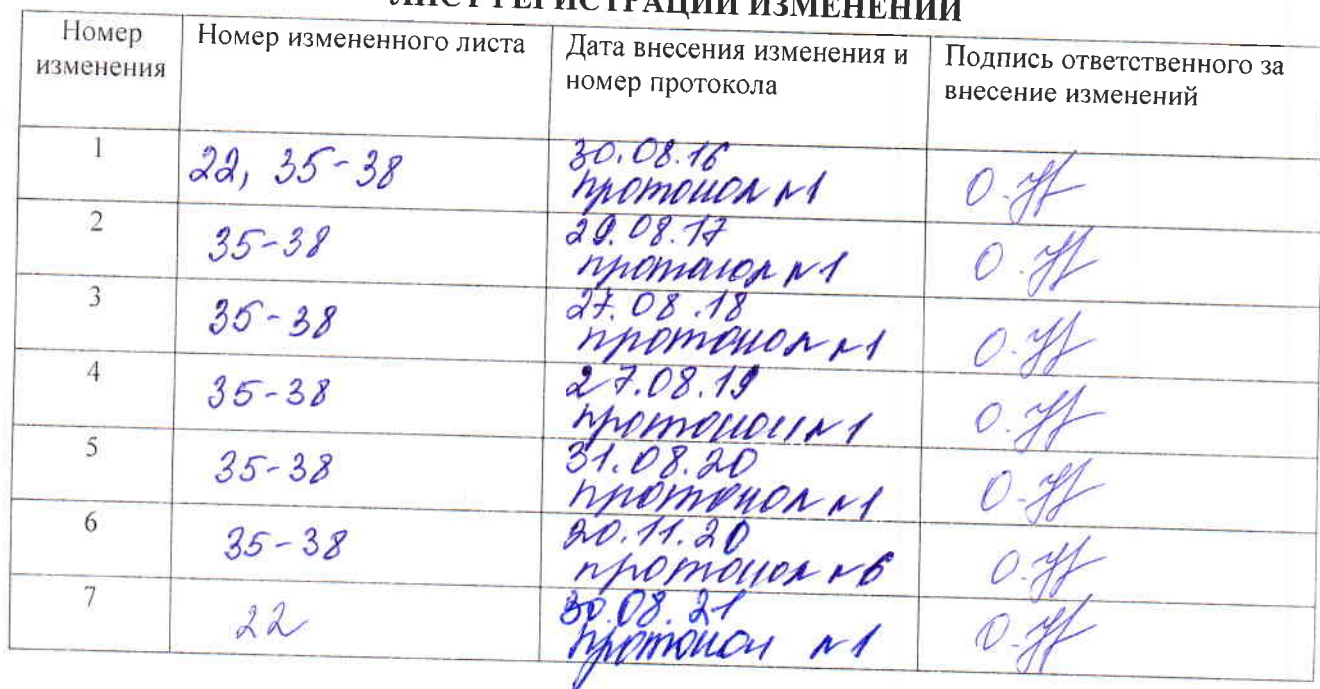 ЛИСТ РЕГИСТРАЦИИ ИЗМЕНЕНИЙ
Номер изменения
Номер измененного листа
Дата внесения изменения и
номер протокола
Подпись ответственного за
внесение изменений
1
22, 35-38
30.08.16
протокол №1
2
35-38
29.08.17
протокол №1
3
35-38
27.08.18
протокол №1
4
35-38
27.08.19
протокол №1
5
35-38
31.08.20
протокол №1
6
35-38
20.11.20
протокол №6
7
22
30.08.21
протокол №1